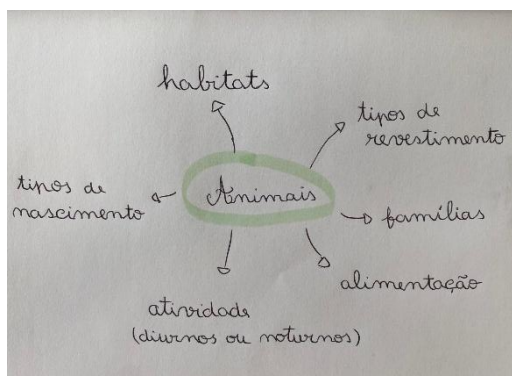 habitats
tipos de
revestimento
Animais
tipos de
nascimento
famílias
alimentação
atividade
(diurnos ou noturnos)